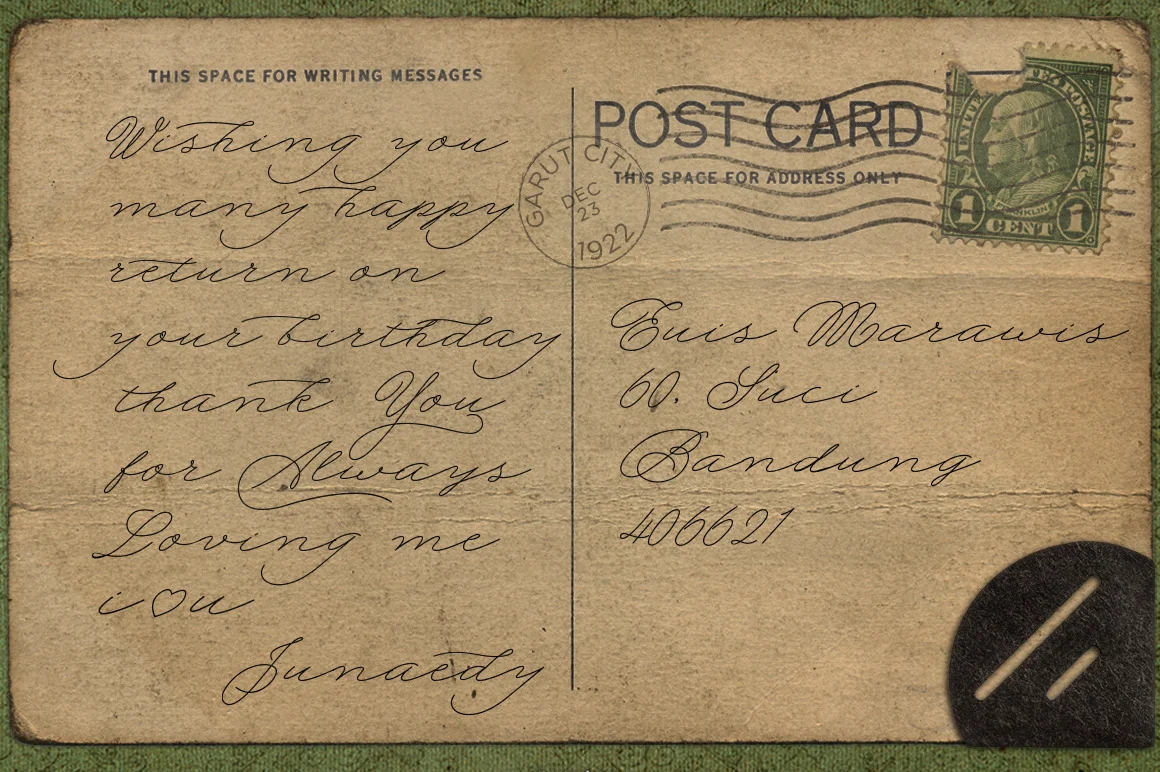 THIS SPACE FOR WRITING MESSAGES
Wishing you
many happy
return on
your birthday
thank You
for Always
Loving me
i♡u
Junaedy
POST CARD
THIS SPACE FOR ADDRESS ONLY
GARUT CITY
DEC
23
1922
POSTAGE
FRANKLIN
1 CENT 1
Euis Marawis
60. Suci
Bandung
406621